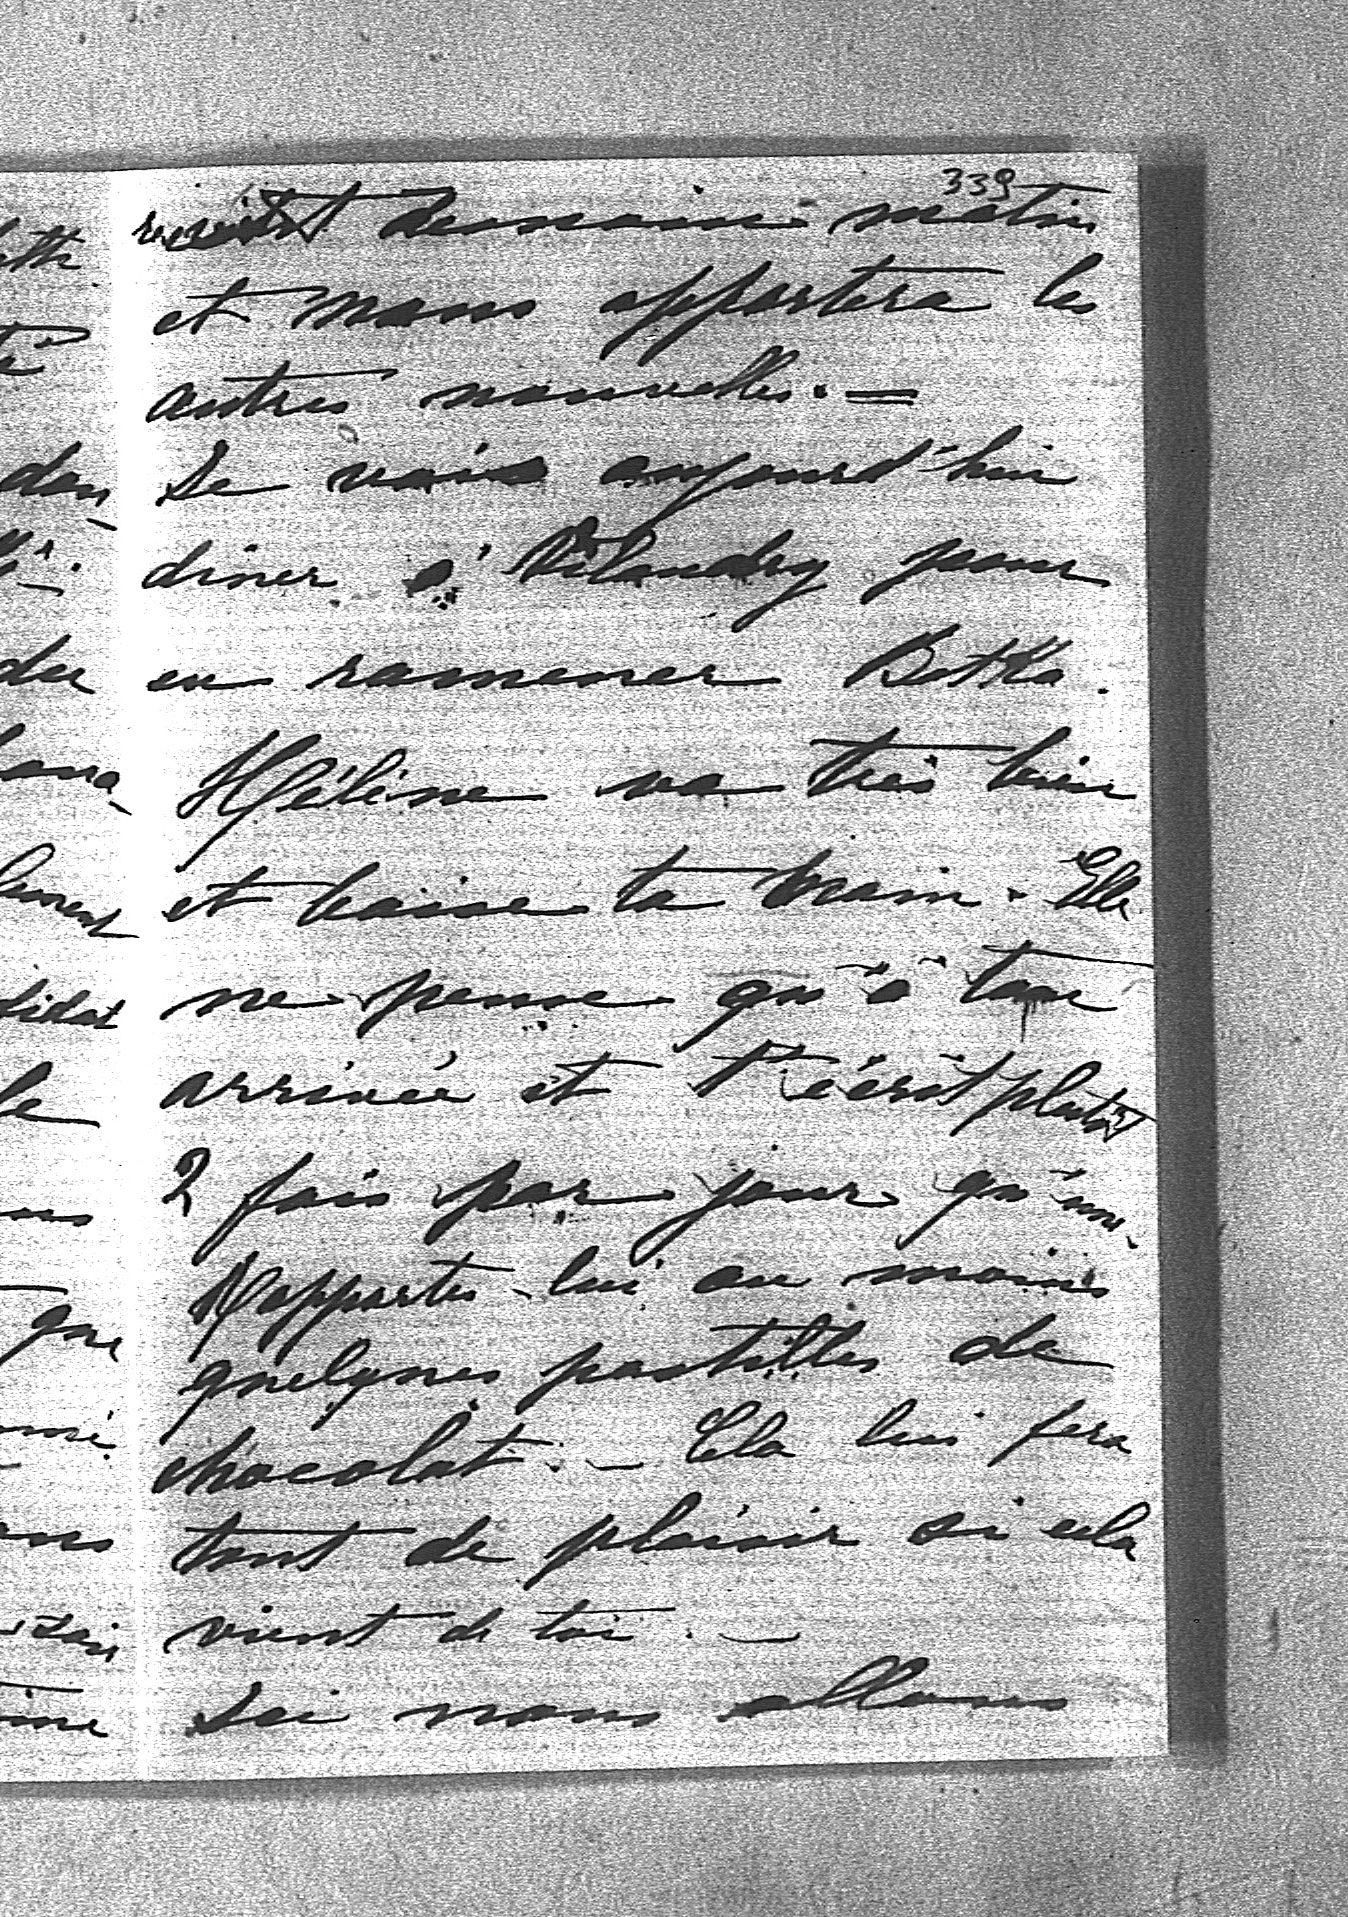 339
revient demain matin
et nous apportera les
autres nouvelles. =
Je vais aujourd'hui
diner à Vilandry pour
en ramener Botka.
Hélène va très bien
et baise ta main. Elle
ne pense qu'à ton
arrivée et t'écrit plutôt
2 fois par jour qu'une.
Rapportes-lui au moins
quelques pastilles de
chocolat. — Cela lui fera
tant de plaisir si cela
vient de toi. —
Ici nous allons